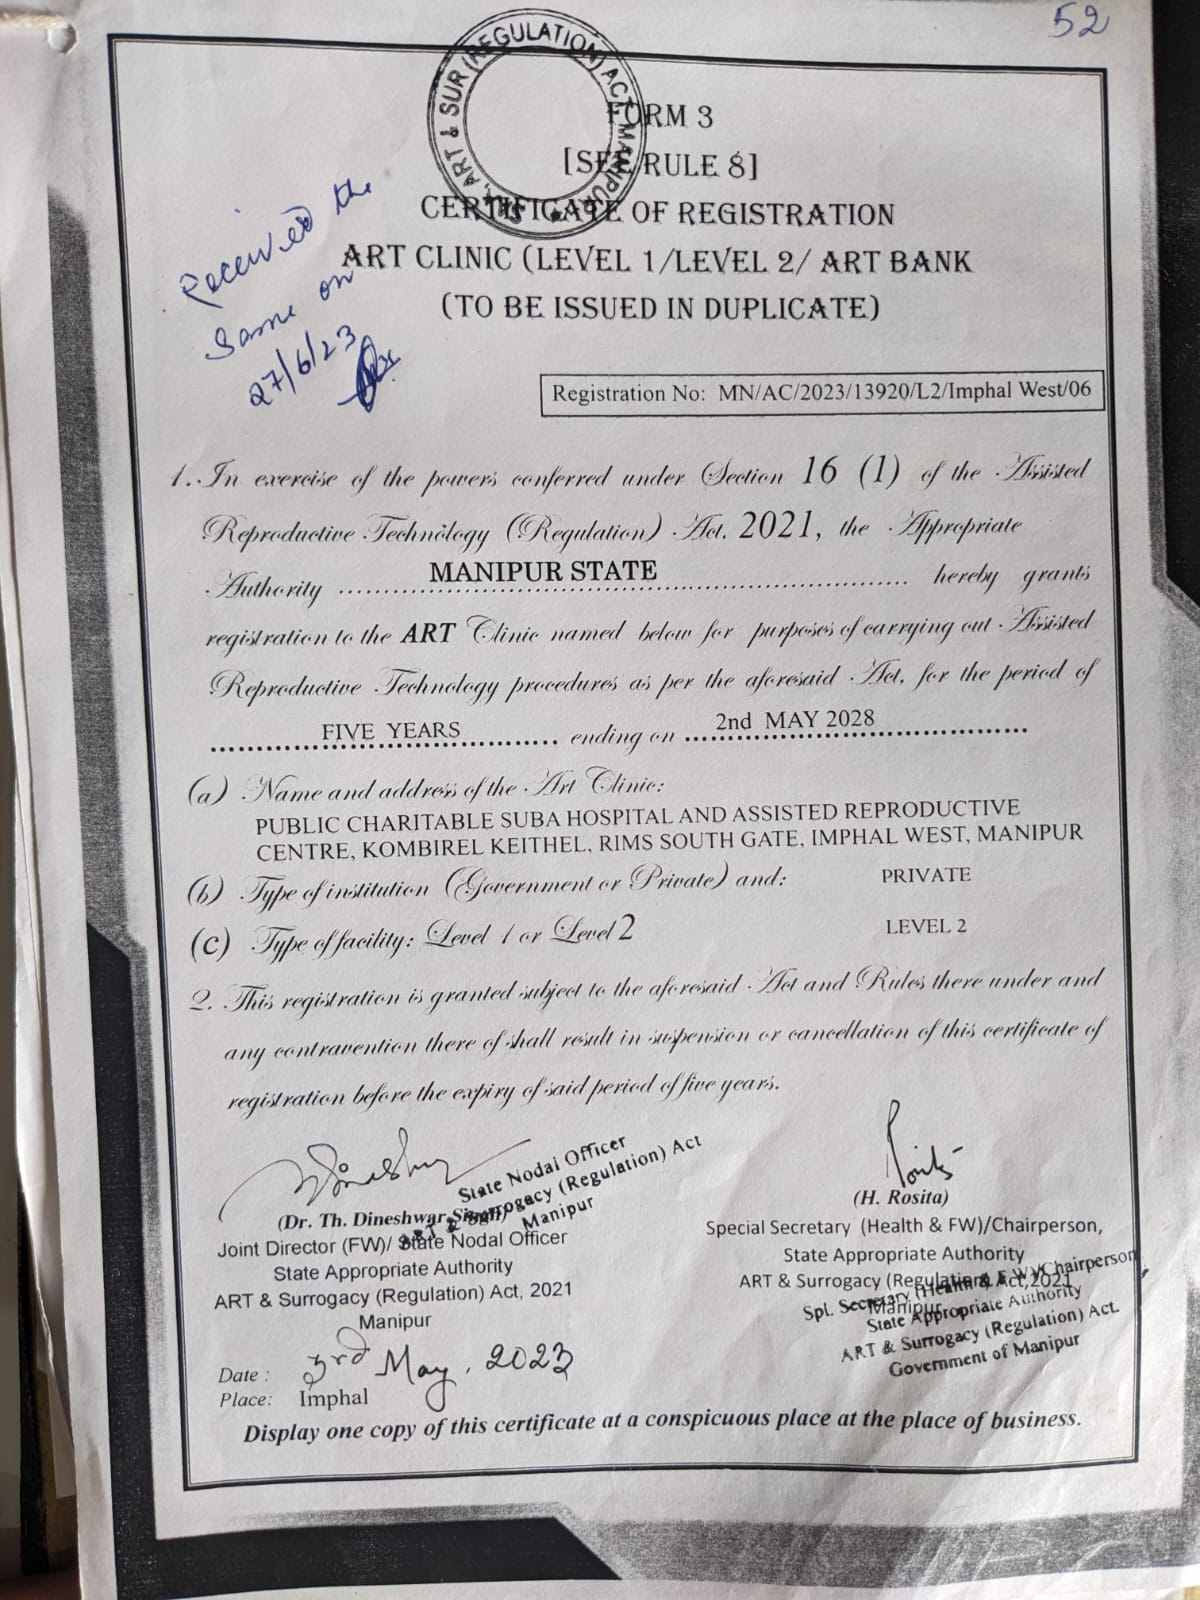 52
ART & SUR (REGULATION) ACT, MANIPUR
FORM 3
[SEE RULE 8]
CERTIFICATE OF REGISTRATION
ART CLINIC (LEVEL 1/LEVEL 2/ ART BANK
(TO BE ISSUED IN DUPLICATE)
Received the
Same on
27/6/23
Registration No: MN/AC/2023/13920/L2/Imphal West/06
1. In exercise of the powers conferred under Section 16 (1) of the Assisted
Reproductive Technology (Regulation) Act, 2021, the Appropriate
Authority ........ MANIPUR STATE ........ hereby grants
registration to the ART Clinic named below for purposes of carrying out Assisted
Reproductive Technology procedures as per the aforesaid Act, for the period of
........ FIVE YEARS ........ ending on ... 2nd MAY 2028 ........
(a) Name and address of the Art Clinic:
PUBLIC CHARITABLE SUBA HOSPITAL AND ASSISTED REPRODUCTIVE
CENTRE, KOMBIREL KEITHEL, RIMS SOUTH GATE, IMPHAL WEST, MANIPUR
(b) Type of institution (Government or Private) and: PRIVATE
(c) Type of facility: Level 1 or Level 2 LEVEL 2
2. This registration is granted subject to the aforesaid Act and Rules there under and
any contravention there of shall result in suspension or cancellation of this certificate of
registration before the expiry of said period of five years.
State Nodal Officer
ART & Surrogacy (Regulation) Act
Manipur
(Dr. Th. Dineshwar Singh)
Joint Director (FW)/ State Nodal Officer
State Appropriate Authority
ART & Surrogacy (Regulation) Act, 2021
Manipur
Date : 3rd May, 2023
Place: Imphal
(H. Rosita)
Special Secretary (Health & FW)/Chairperson,
State Appropriate Authority
ART & Surrogacy (Regulation) Act,2021
Manipur
Spl. Secretary (Health & F.W)/Chairperson
State Appropriate Authority
ART & Surrogacy (Regulation) Act.
Government of Manipur
Display one copy of this certificate at a conspicuous place at the place of business.